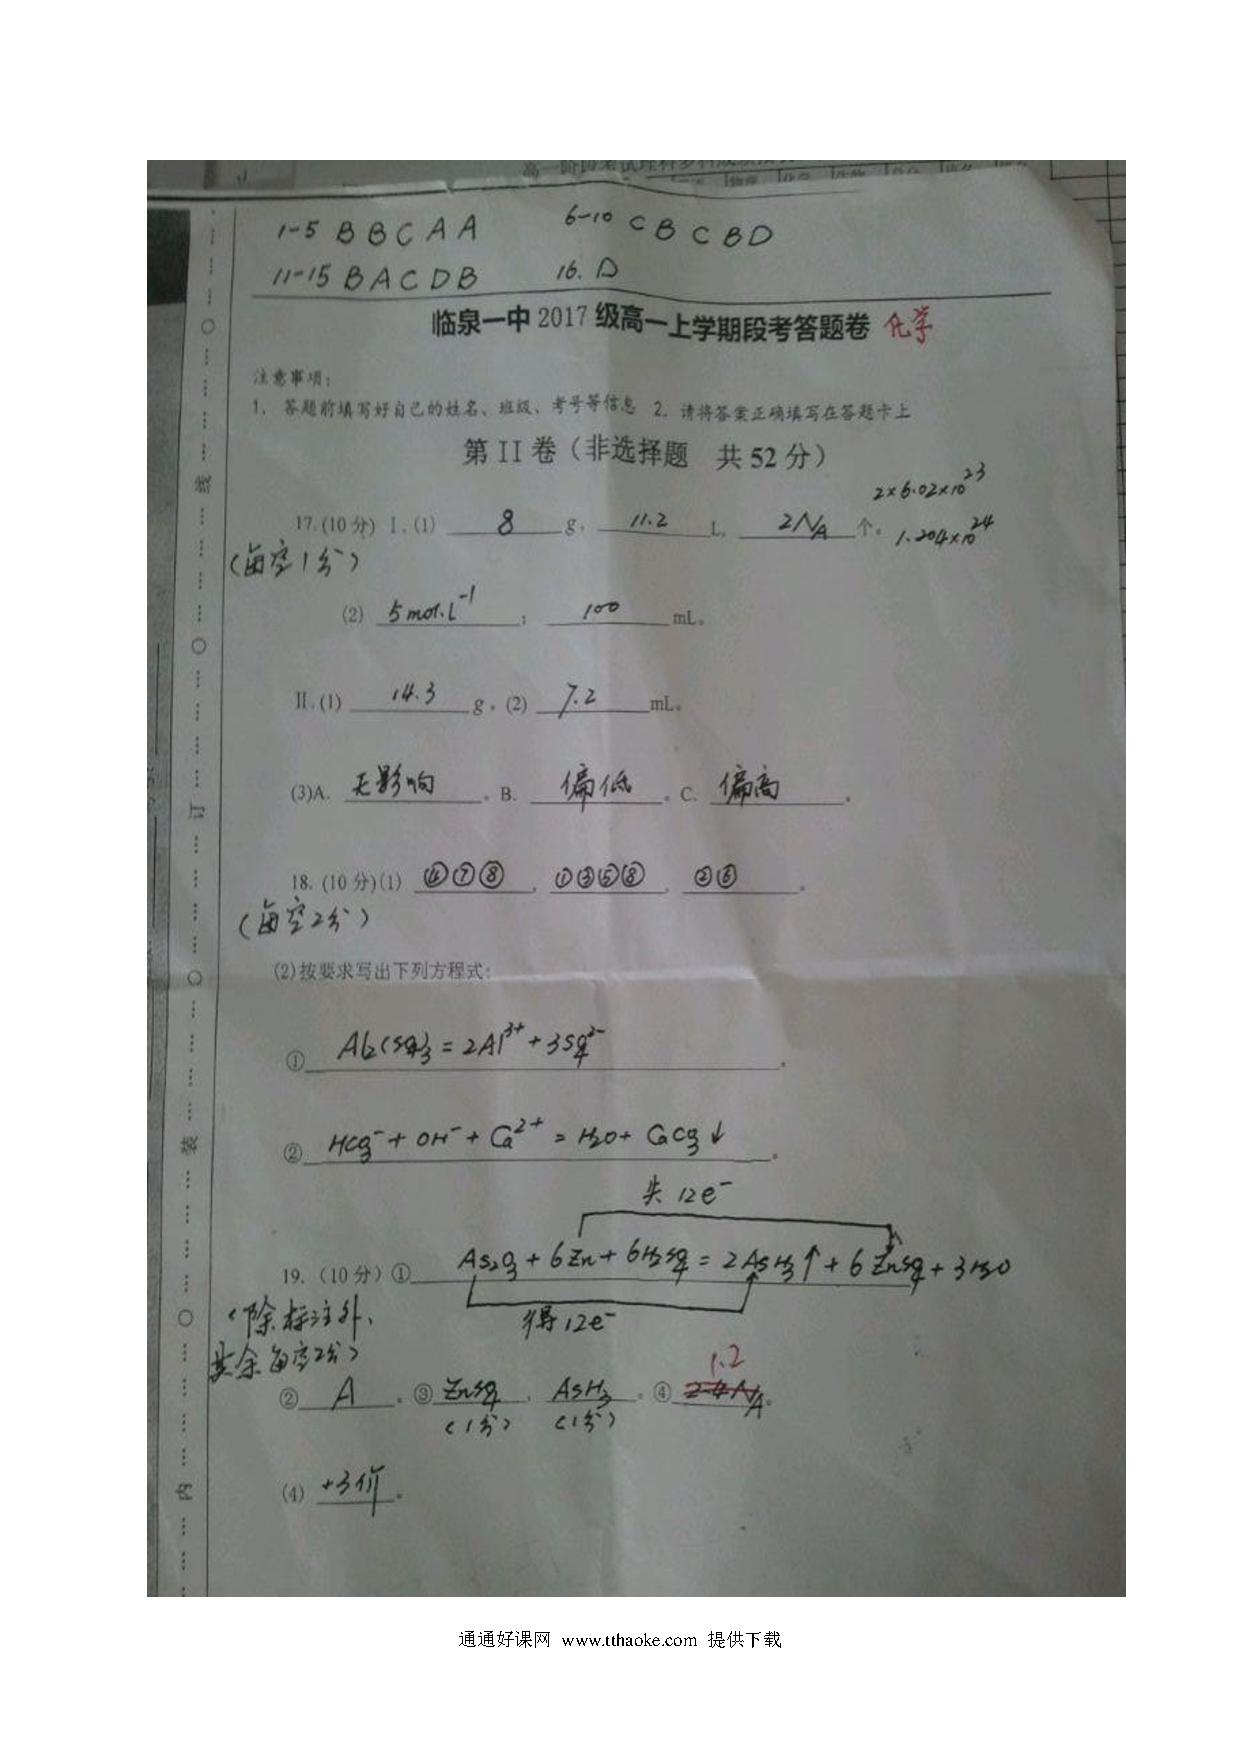 1-5 B B C A A 6-10 C B C B D
11-15 B A C D B 16. D
临泉一中 2017 级高一上学期段考答题卷 化学
注意事项：
1、答题前填写好自己的姓名、班级、考号等信息 2、请将答案正确填写在答题卡上
第 II 卷（非选择题 共 52 分）
2×6.02×10²³
17.(10分) Ⅰ.(1) 8 g, 11.2 L, 2NA 个。 1.204×10²⁴
(每空1分)
(2) 5mol·L⁻¹ ; 100 mL。
Ⅱ.(1) 14.3 g。(2) 7.2 mL。
(3)A. 无影响 。B. 偏低 。C. 偏高 。
18.(10分)(1) ④⑦⑧ , ①③⑤⑧ , ②⑥ 。
(每空2分)
(2)按要求写出下列方程式:
① Al₂(SO₄)₃ = 2Al³⁺ + 3SO₄²⁻ 。
② HCO₃⁻ + OH⁻ + Ca²⁺ = H₂O + CaCO₃↓ 。
失 12e⁻
19.（10分）① As₂O₃ + 6Zn + 6H₂SO₄ = 2AsH₃↑ + 6ZnSO₄ + 3H₂O
(除标注外,
其余每空2分)
得 12e⁻
1.2
② A 。③ ZnSO₄ , AsH₃ 。④ 2.4NA 。
(1分) (1分)
(4) +3价 。
线
订
装
内
通通好课网 www.tthaoke.com 提供下载